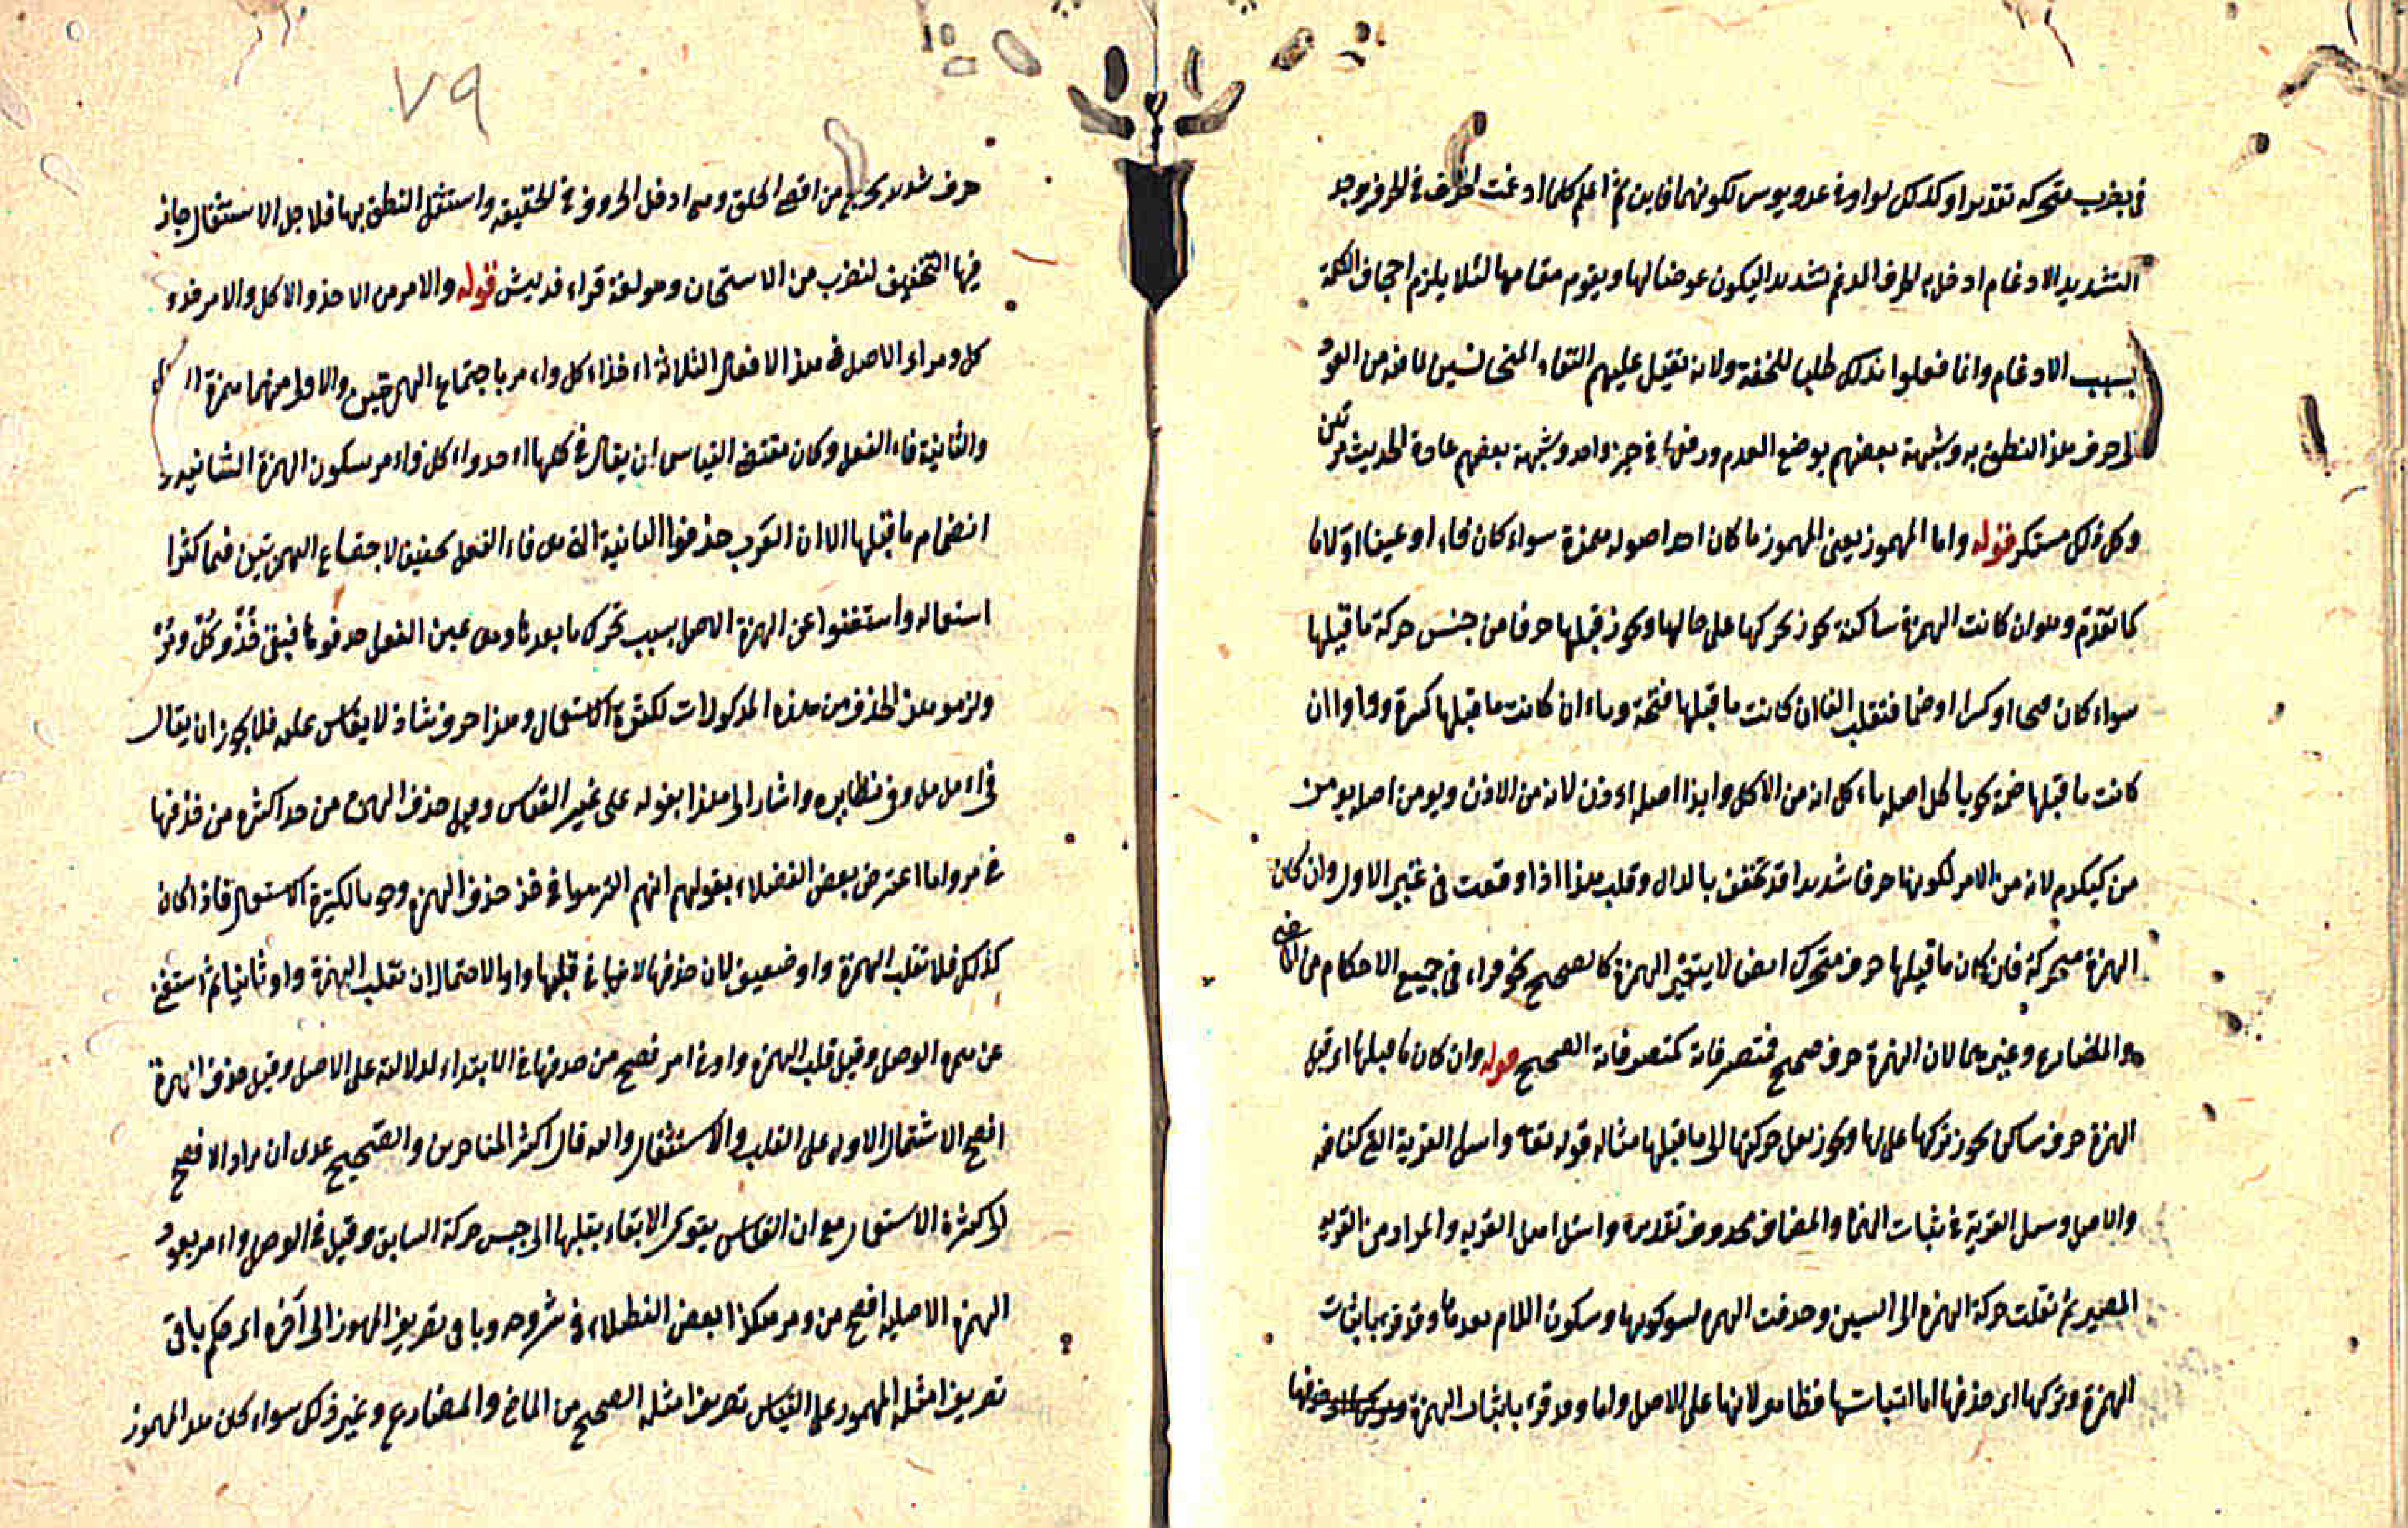 في يضرب متحركه تقديرا وكذلك لواو في عدو ويوس لكونهما فاين ثم اعلم كلما ادغمت الحرف في الحرف يوجد
التشديد الادغام ادخل به الحرف المدغم تشديدا ليكون عوضا لها ويقوم مقامها لئلا يلزم اجحاف الكلمة
بسبب الادغام وانما فعلوا بذلك طلبا للخفة ولانه ثقيل عليهم التقاء المتجانسين لما فيه من العود
الى حرف بعد النطق به وشبهه بعضهم بوضع القدم ورفعها في حيز واحد وشبهه بعضهم عادة الحديث مرتين
وكل ذلك مستكره قوله واما المهموز يعنى المهموز ما كان احد اصوله همزة سواء كان فاء او عينا او لاما
كما تقدم وهو ان كانت الهمزة ساكنة يجوز تركها على حالها ويجوز قبلها حرفا من جنس حركة ما قبلها
سواء كان فتحا او كسرا او ضما فتقلب الفا ان كانت ما قبلها فتحة وياء ان كانت ما قبلها كسرة وواوا ان
كانت ما قبلها ضمة نحو ياكل اصله ياءكل انه من الاكل وايذا اصله اءذن لانه من الاذن ويومن اصله يومن
من كيكرم لانه من الامر لكونها حرفا شديدا قد تخفف بالدال وقلب هذا اذا وقعت في غير الاول وان كان
الهمزة متحركة فان كان ما قبلها حرف متحرك ايضا لا يتغير الهمزة كالصحيح نحو قراء في جميع الاحكام من الماضى
والمضارع وغيرهما لان الهمزة حرف صحيح فتصرفاته كتصرفات الصحيح قوله وان كان ما قبلها اى قبل
الهمزة حرف ساكن يجوز تركها على حالها ويجوز نقل حركتها الى ما قبلها مثاله قوله تعا واسئل القرية التى كنا فيها
والاصل وسئل القرية في اثبات الهمزة والمضاف محذوف تقديره واسئل اهل القرية والمراد من القرية
المصير ثم نقلت حركة الهمزة الى السين وحذفت الهمزة لسكونها وسكون اللام بعدها وقد قرء باثبات
الهمزة وتركها اى حذفها اما اثباتها فظاهر لانها على الاصل واما وقد قرء باثبات الهمزة وحذفها
٧٩
حرف شديد يخرج من اقصى الحلق وهى ادخل الحروف في الحقيقة واستثقل النطق بها فلاجل الاستثقال جاز
فيها التخفيف لضرب من الاستحسان وهو لغة قراء قريش قوله والامر من الاخذ والاكل والامر خذ و
كل ومر اى الاصل في هذا الافعال الثلاثة اءخذ اءكل واءمر باجتماع الهمزتين والاولى منهما همزة
والثانية فاء الفعل وكان مقتضى القياس ان يقال في كلها اوخذ واوكل واومر بسكون الهمزة الثانية و
انضمام ما قبلها الا ان العرب حذفوا الثانية التى هى فاء الفعل تخفيفا لاجتماع الهمزتين فيما كثرا
استعماله واستغنوا عن الهمزة الاصل بسبب تحرك ما بعدها وهى عين الفعل حذفوها فبقى خذ وكل ومر
ولزموا هذا الحذف من هذه المذكورات لكثرة الاستعمال وهذا حرف شاذ لا يقاس عليه فلا يجوز ان يقال
في اءمل مل وفى نظايره واشار الى هذا بقوله على غير القياس وقيل حذف الهمزة من خذ اكثر من حذفها
في مر ولما اعترض بعض الفضلاء بقولهم انهم التزموا في خذ حذف الهمزة وهو بالكثرة الاستعمال فاذا كان
كذلك فلا تقلب الهمزة واو ضعيف لان حذفها لا ضما في قبلها واما الاحتمال ان تقلب الهمزة واو ثانيا ثم استغنى
عن همزة الوصل وقيل قلب الهمزة واو في امر فصيح من حذفها في الابتداء لدلالته على الاصل وقيل حذف الهمزة
افصح الاشتمال الاوله على القلب والاستثقال والله قال اكثر المتاخرين والصحيح عندى ان مراد الافصح
لاكثرة الاستعمال مع ان القياس يقوى الابتداء بقلبها الى جنس حركة السابق وقيل في الوصل واءمر بعود
الهمزة الاصلية افصح من ومر هكذا بعض الفضلاء في شروحه وباقى تصريف المهموز الى آخره اى حكم باقى
تصريف امثلة المهموز على القياس تصريف امثلة الصحيح من الماضى والمضارع وغير ذلك سواء كان هذا المهموز